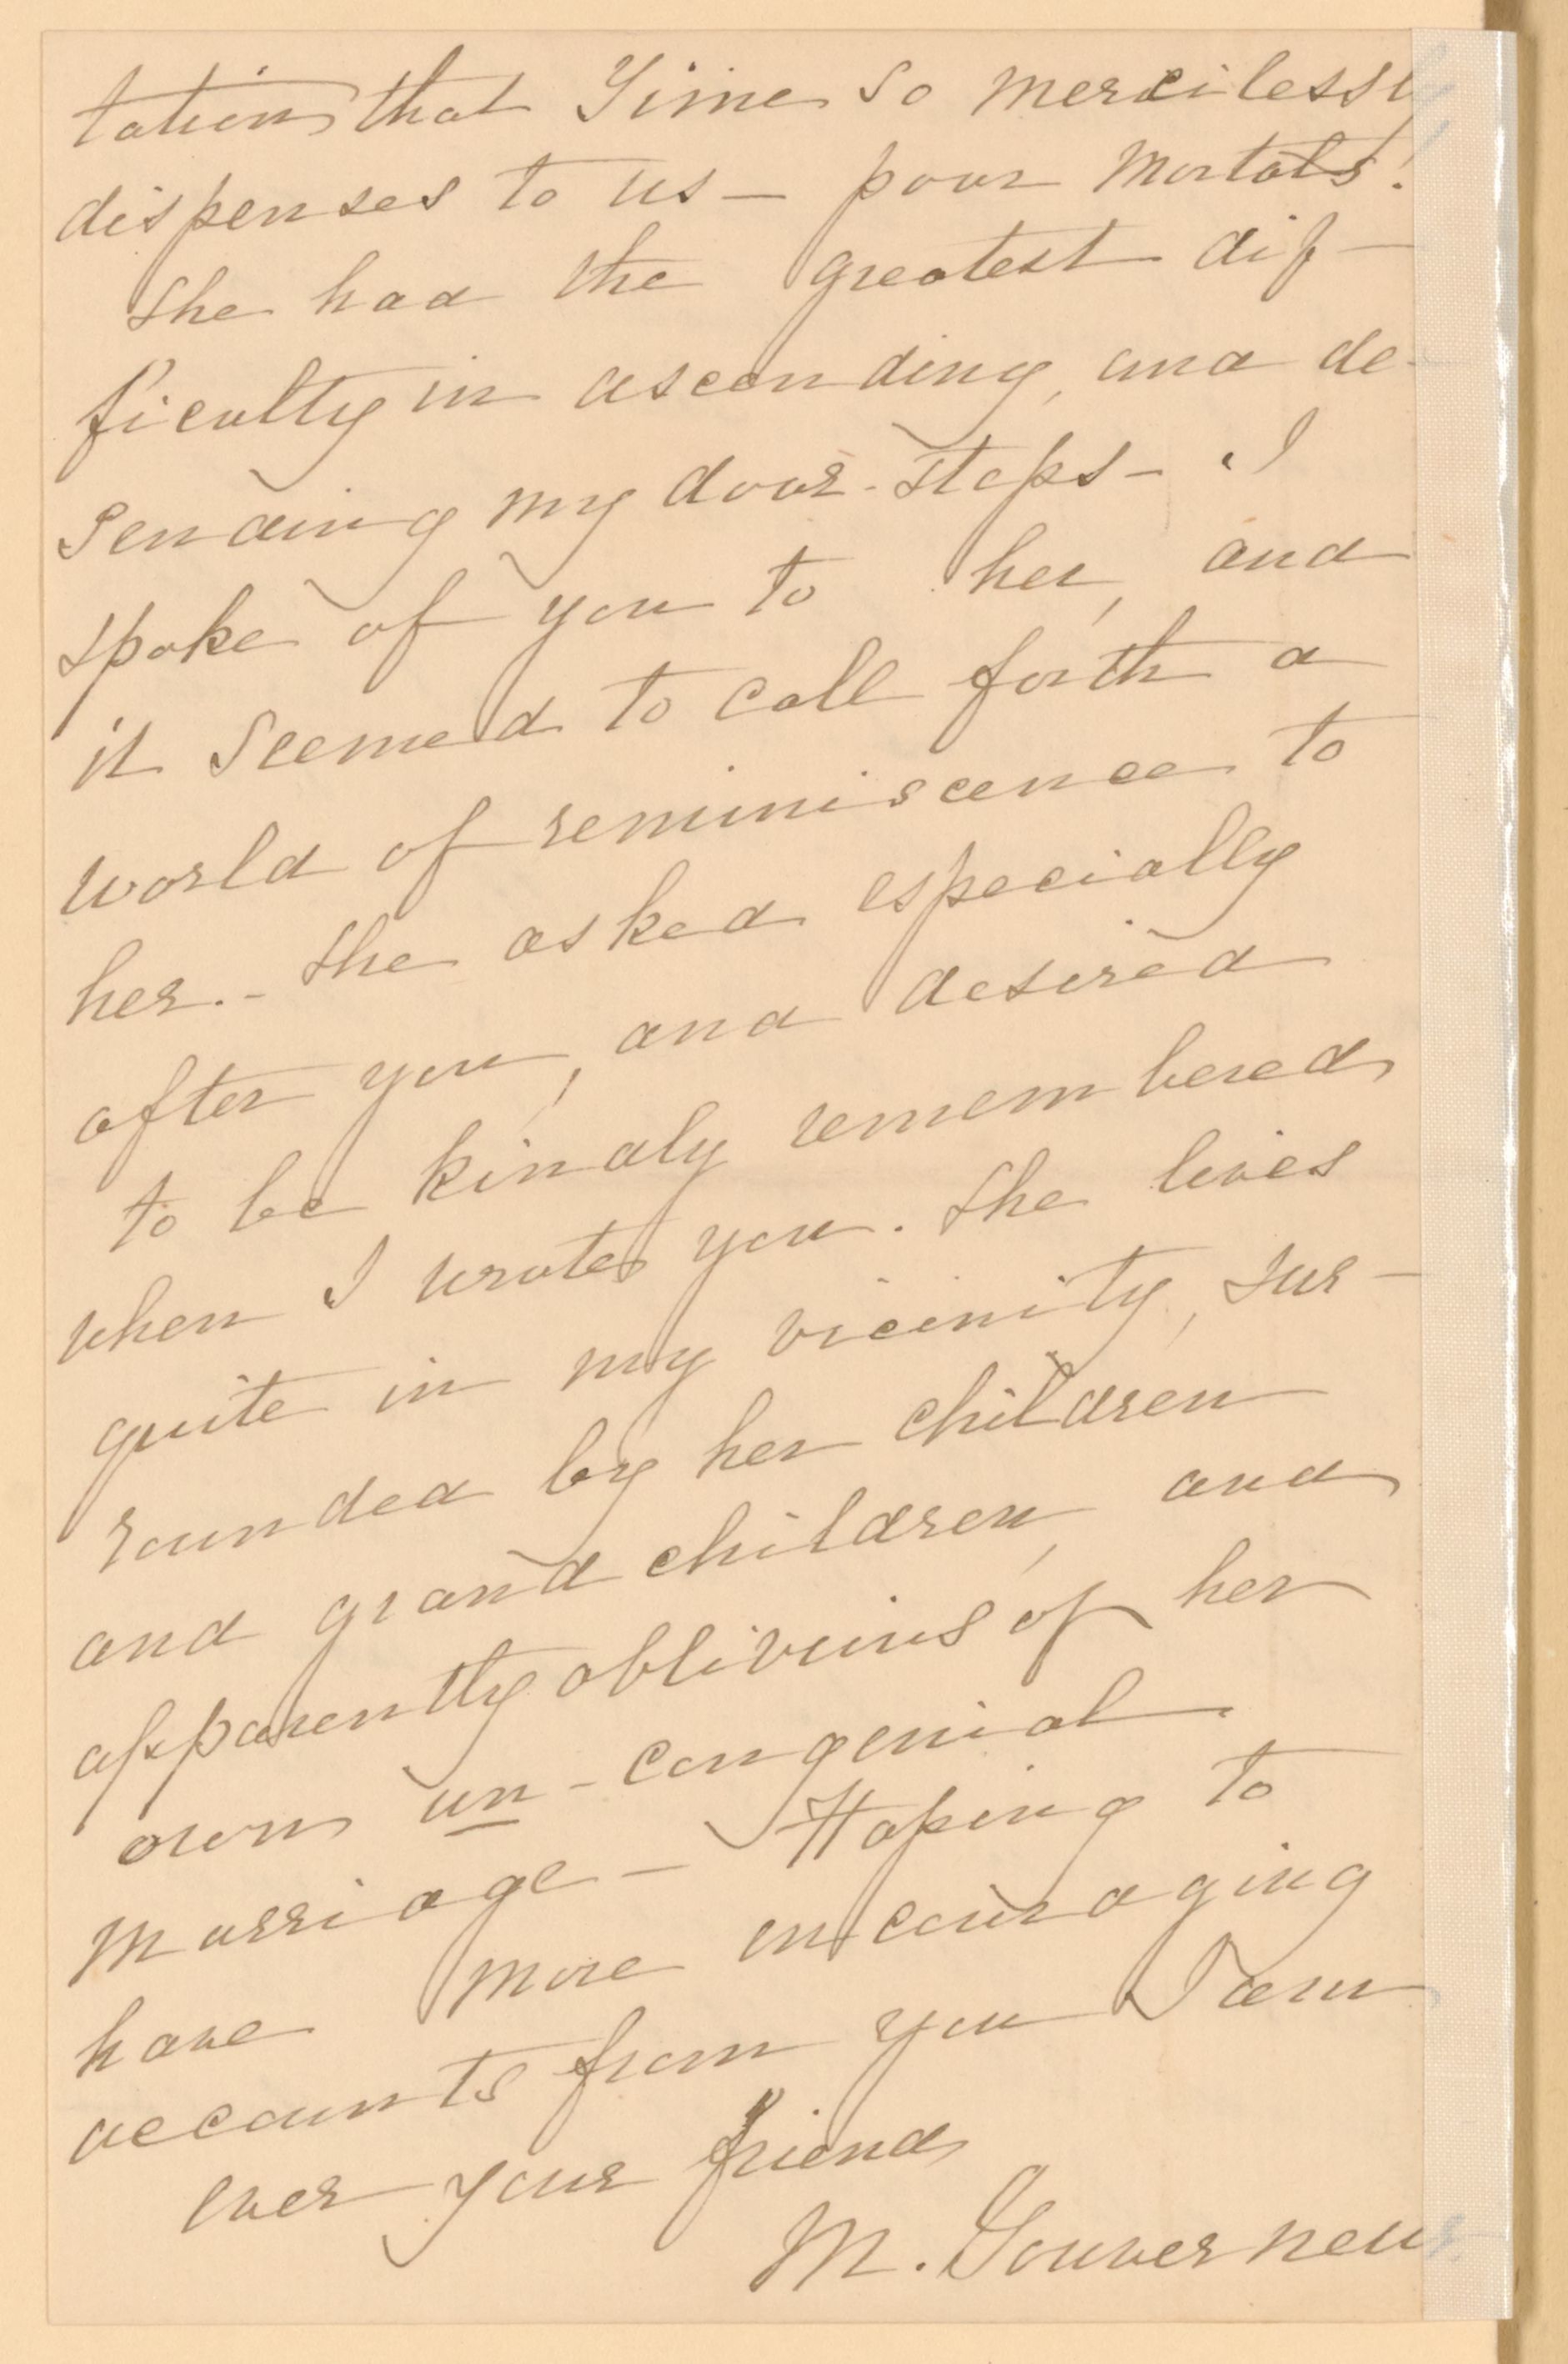 tation that Time so mercilessly
dispenses to us — poor mortals!
She had the greatest dif-
ficulty in ascending, and de-
sending my door-steps — I
spoke of you to her, and
it seemed to call forth a
world of reminiscence to
her. - She asked especially
after you, and desired
to be kindly remembered
when I wrote you. She lives
quite in my vicinity, sur-
rounded by her children
and grand children, and
apparently oblivious of her
own un-congenial
marriage — Hoping to
have more encouraging
accounts from you I am
ever your friend
M. Gouverneur